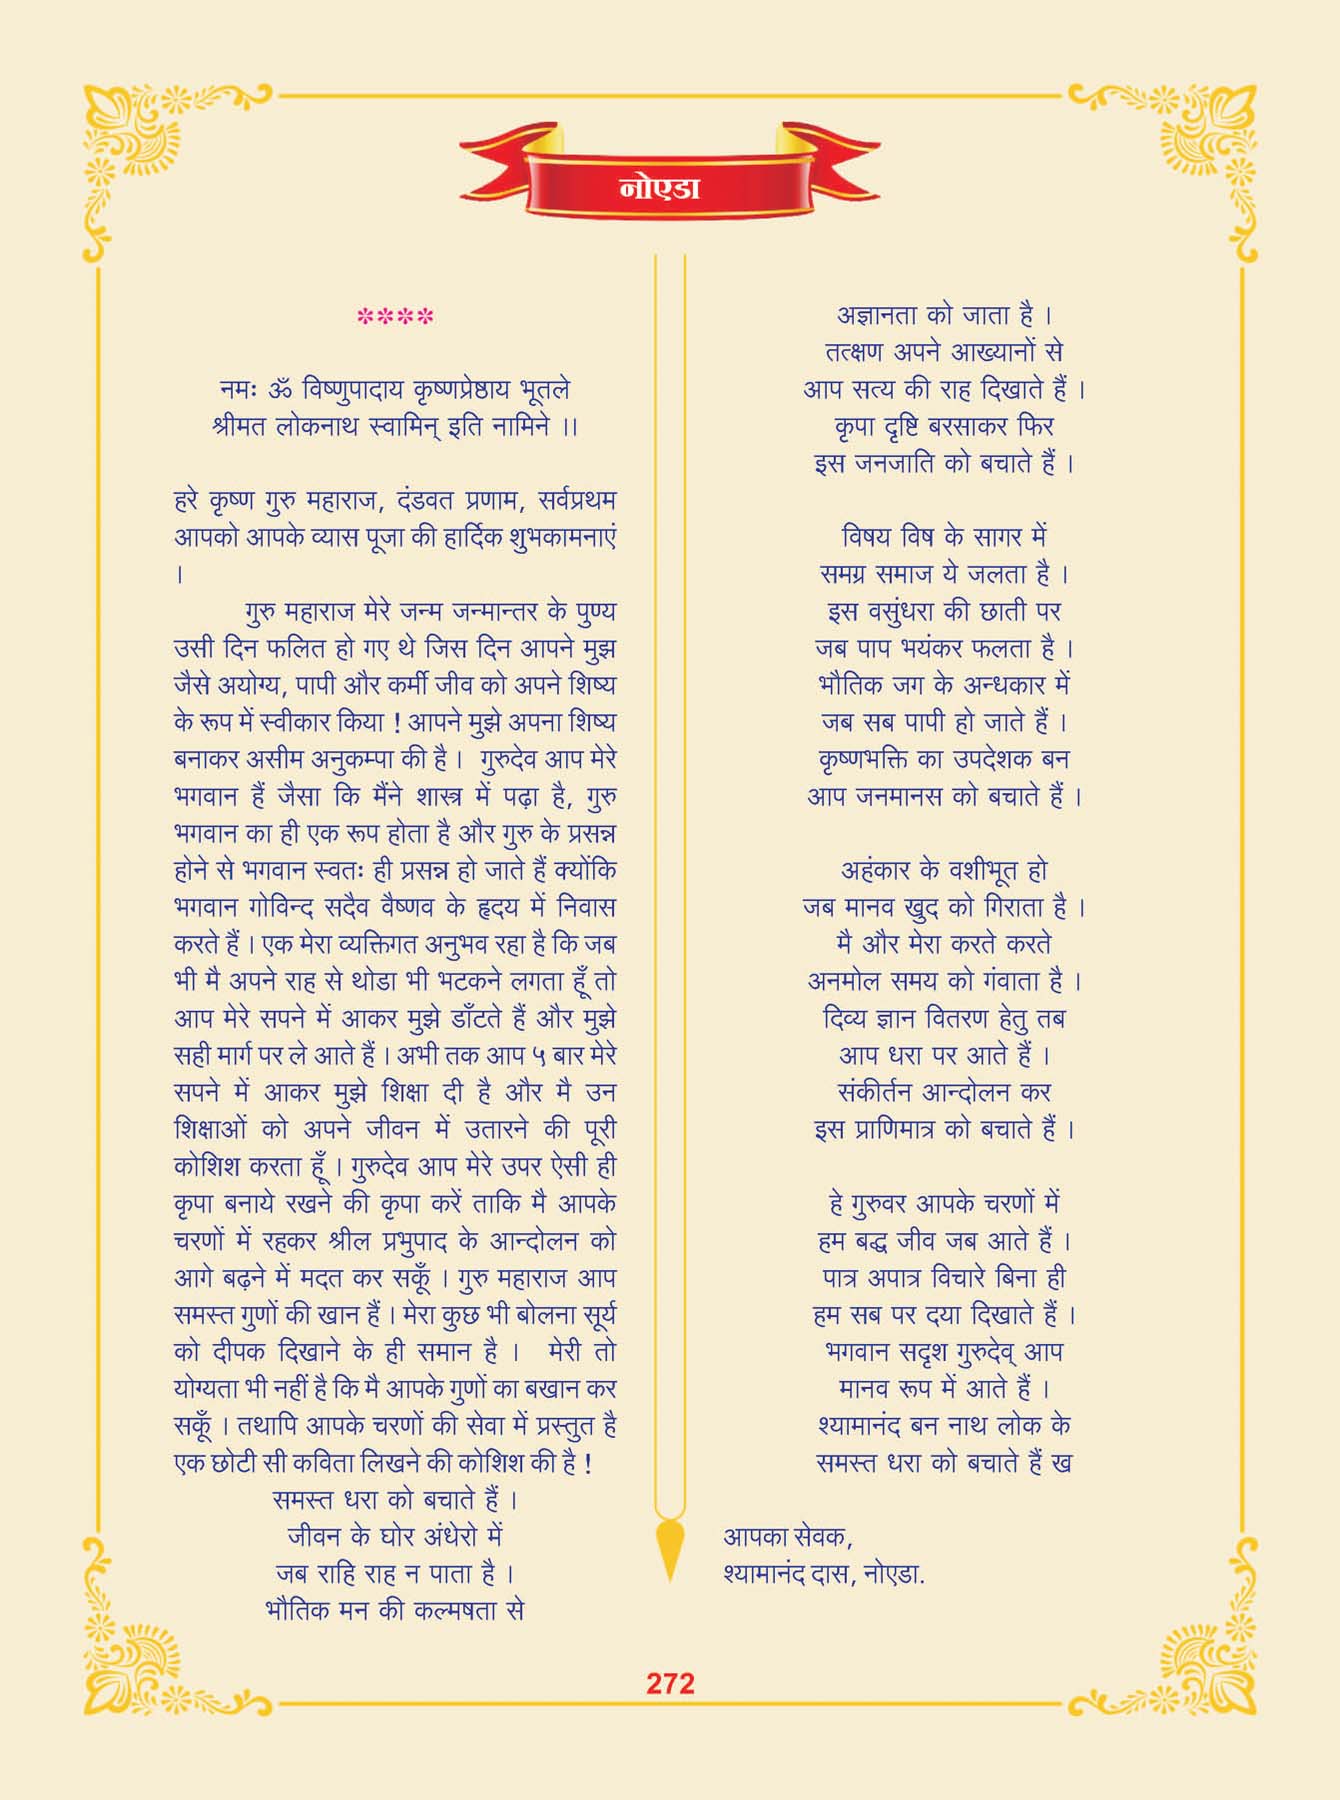 नोएडा
****
नमः ॐ विष्णुपादाय कृष्णप्रेष्ठाय भूतले
श्रीमत लोकनाथ स्वामिन् इति नामिने ।।
हरे कृष्ण गुरु महाराज, दंडवत प्रणाम, सर्वप्रथम
आपको आपके व्यास पूजा की हार्दिक शुभकामनाएं
।
गुरु महाराज मेरे जन्म जन्मान्तर के पुण्य
उसी दिन फलित हो गए थे जिस दिन आपने मुझ
जैसे अयोग्य, पापी और कर्मी जीव को अपने शिष्य
के रूप में स्वीकार किया ! आपने मुझे अपना शिष्य
बनाकर असीम अनुकम्पा की है । गुरुदेव आप मेरे
भगवान हैं जैसा कि मैंने शास्त्र में पढ़ा है, गुरु
भगवान का ही एक रूप होता है और गुरु के प्रसन्न
होने से भगवान स्वतः ही प्रसन्न हो जाते हैं क्योंकि
भगवान गोविन्द सदैव वैष्णव के हृदय में निवास
करते हैं । एक मेरा व्यक्तिगत अनुभव रहा है कि जब
भी मै अपने राह से थोडा भी भटकने लगता हूँ तो
आप मेरे सपने में आकर मुझे डाँटते हैं और मुझे
सही मार्ग पर ले आते हैं । अभी तक आप ५ बार मेरे
सपने में आकर मुझे शिक्षा दी है और मै उन
शिक्षाओं को अपने जीवन में उतारने की पूरी
कोशिश करता हूँ । गुरुदेव आप मेरे उपर ऐसी ही
कृपा बनाये रखने की कृपा करें ताकि मै आपके
चरणों में रहकर श्रील प्रभुपाद के आन्दोलन को
आगे बढ़ने में मदत कर सकूँ । गुरु महाराज आप
समस्त गुणों की खान हैं । मेरा कुछ भी बोलना सूर्य
को दीपक दिखाने के ही समान है । मेरी तो
योग्यता भी नहीं है कि मै आपके गुणों का बखान कर
सकूँ । तथापि आपके चरणों की सेवा में प्रस्तुत है
एक छोटी सी कविता लिखने की कोशिश की है !
समस्त धरा को बचाते हैं ।
जीवन के घोर अंधेरो में
जब राहि राह न पाता है ।
भौतिक मन की कल्मषता से
अज्ञानता को जाता है ।
तत्क्षण अपने आख्यानों से
आप सत्य की राह दिखाते हैं ।
कृपा दृष्टि बरसाकर फिर
इस जनजाति को बचाते हैं ।
विषय विष के सागर में
समग्र समाज ये जलता है ।
इस वसुंधरा की छाती पर
जब पाप भयंकर फलता है ।
भौतिक जग के अन्धकार में
जब सब पापी हो जाते हैं ।
कृष्णभक्ति का उपदेशक बन
आप जनमानस को बचाते हैं ।
अहंकार के वशीभूत हो
जब मानव खुद को गिराता है ।
मै और मेरा करते करते
अनमोल समय को गंवाता है ।
दिव्य ज्ञान वितरण हेतु तब
आप धरा पर आते हैं ।
संकीर्तन आन्दोलन कर
इस प्राणिमात्र को बचाते हैं ।
हे गुरुवर आपके चरणों में
हम बद्ध जीव जब आते हैं ।
पात्र अपात्र विचारे बिना ही
हम सब पर दया दिखाते हैं ।
भगवान सदृश गुरुदेव् आप
मानव रूप में आते हैं ।
श्यामानंद बन नाथ लोक के
समस्त धरा को बचाते हैं ख
आपका सेवक,
श्यामानंद दास, नोएडा.
272